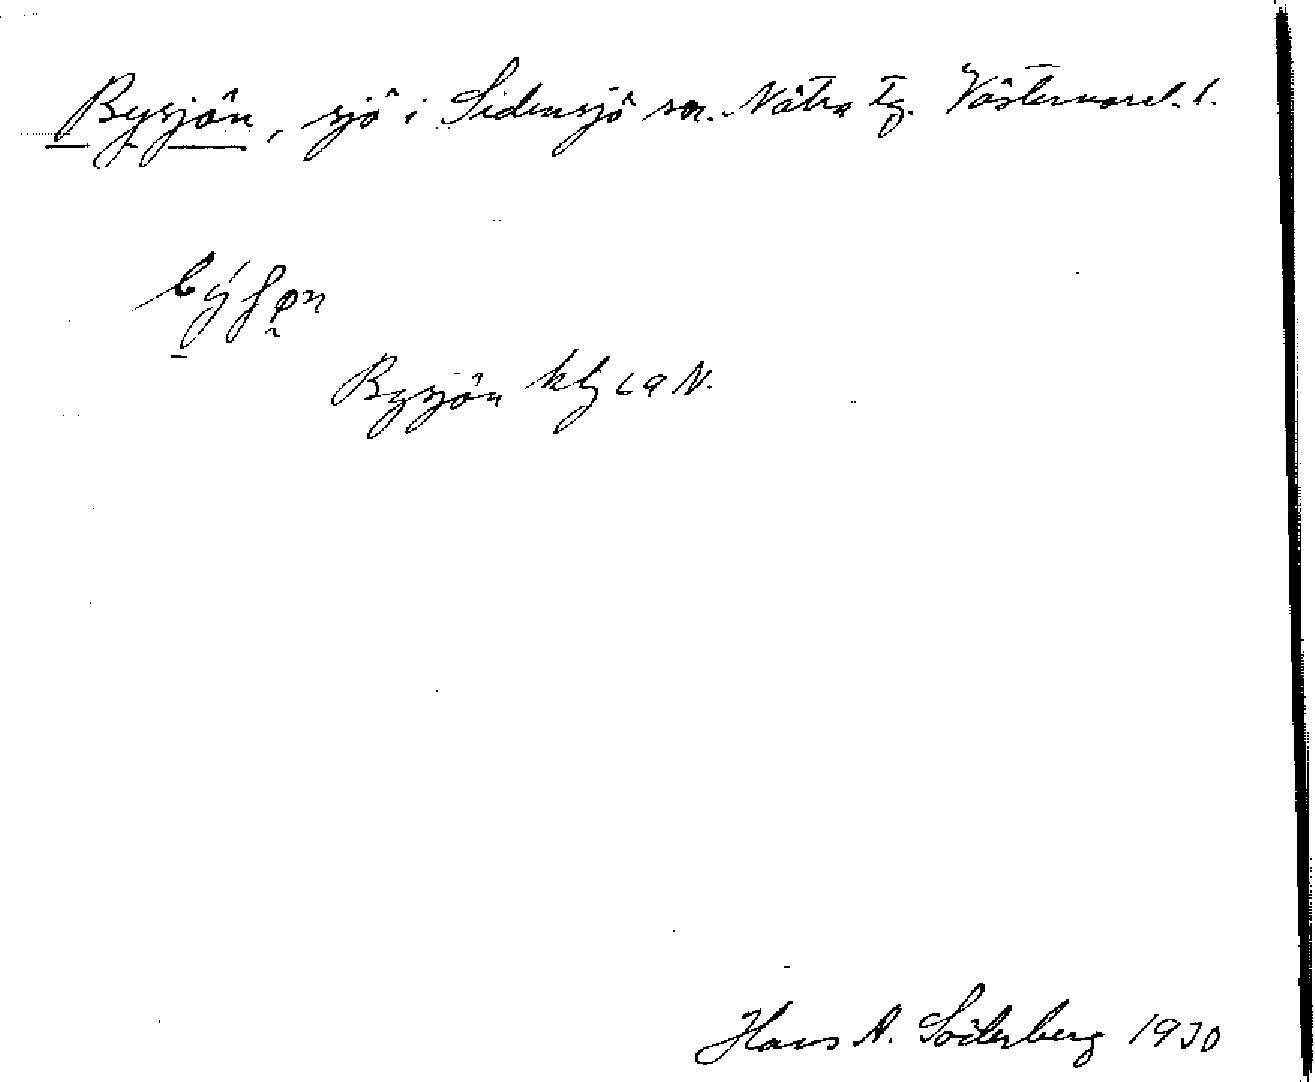 Bysjön, sjö i Sidensjö sn. Nätra tg. Västernorrl. l.
Bysjön
Hans A. Söderberg 1930